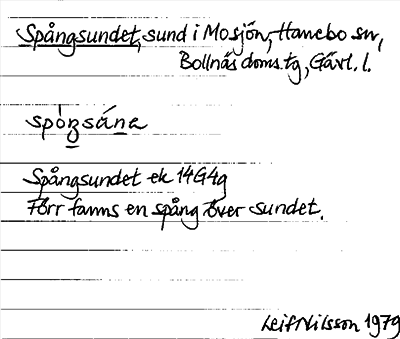 Spångsundet, sund i Mosjön, Hanebo sn,
Bollnäs doms.tg, Gävl. l.
Spångsundet ek 14G4g
Förr fanns en spång över sundet.
Leif Nilsson 1979